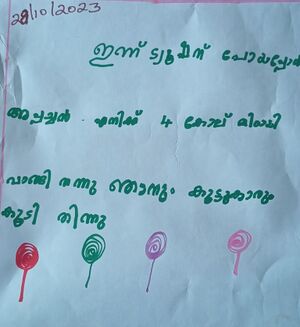 28/10/2023
ഇന്ന് ട്യൂഷന് പോയപ്പോൾ
അപ്പച്ചൻ എനിക്ക് 4 കോല് മിഠായി
വാങ്ങി തന്നു ഞാനും കൂട്ടുകാരും
കൂടി തിന്നു